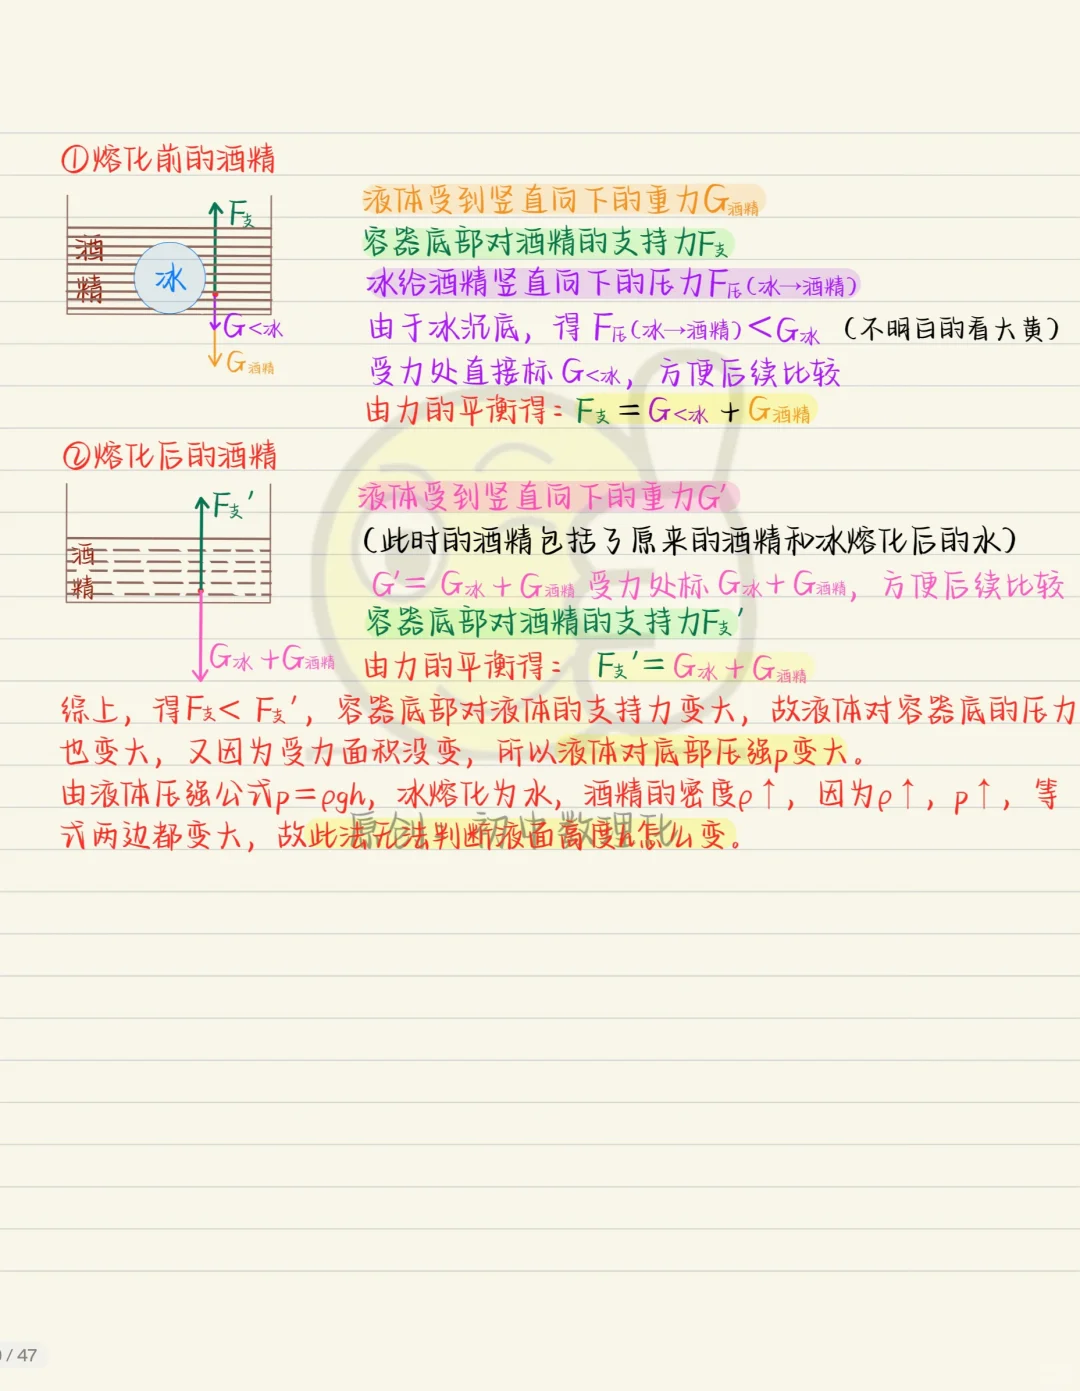 ①熔化前的酒精
F支
酒精
冰
G<冰
G酒精
液体受到竖直向下的重力G酒精
容器底部对酒精的支持力F支
冰给酒精竖直向下的压力F压(冰→酒精)
由于冰沉底，得 F压(冰→酒精)<G冰 (不明白的看大黄)
受力处直接标G<冰，方便后续比较
由力的平衡得：F支=G<冰+G酒精
②熔化后的酒精
F支′
酒精
G冰+G酒精
液体受到竖直向下的重力G′
(此时的酒精包括了原来的酒精和冰熔化后的水)
G′=G冰+G酒精 受力处标G冰+G酒精，方便后续比较
容器底部对酒精的支持力F支′
由力的平衡得： F支′=G冰+G酒精
综上，得F支<F支′，容器底部对液体的支持力变大，故液体对容器底的压力
也变大，又因为受力面积没变，所以液体对底部压强p变大。
由液体压强公式p=ρgh，冰熔化为水，酒精的密度ρ↑，因为ρ↑，p↑，等
式两边都变大，故此法无法判断液面高度h怎么变。
原创 初中数理化
/ 47